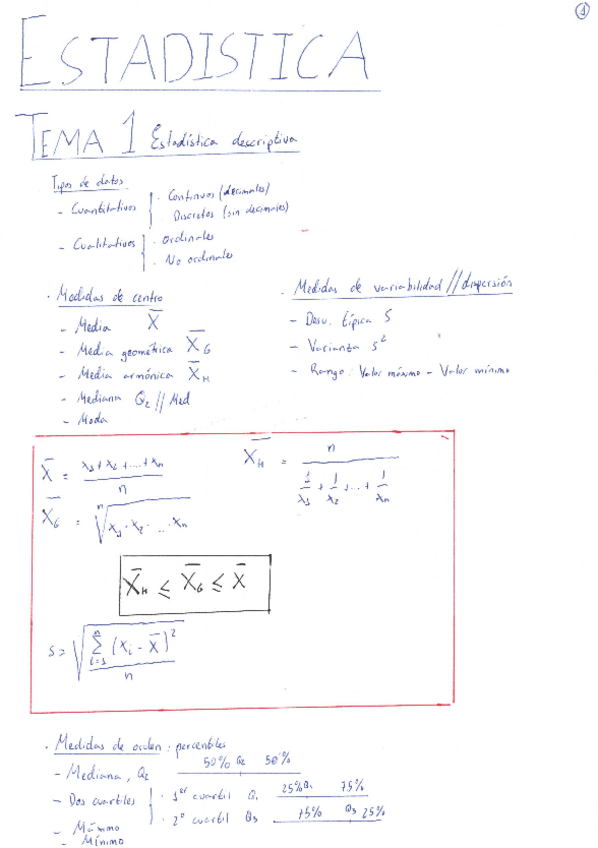 1
ESTADISTICA
TEMA 1 Estadística descriptiva
Tipos de datos
- Cuantitativos { · Continuos (decimales)
· Discretos (sin decimales)
- Cualitativos { · Ordinales
· No ordinales
· Medidas de centro
- Media X̄
- Media geométrica X̄G
- Media armónica X̄H
- Mediana Q2 // Med
- Moda
· Medidas de variabilidad // dispersión
- Desv. típica S
- Varianza S²
- Rango: Valor máximo - Valor mínimo
X̄ = (x1 + x2 + ... + xn) / n
X̄H = n / (1/x1 + 1/x2 + ... + 1/xn)
X̄G = ⁿ√(x1 · x2 · ... · xn)
X̄H ≤ X̄G ≤ X̄
S = √(∑ i=1 n (xi - X̄)² / n)
· Medidas de orden: percentiles
- Mediana, Q2 50% Q2 50%
- Dos cuartiles { · 1er cuartil Q1 25% Q1 75%
· 2º cuartil Q3 75% Q3 25%
- Máximo
- Mínimo